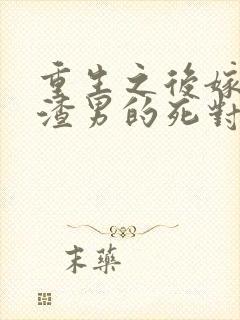 重生之後嫁
渣男的死對
末藥